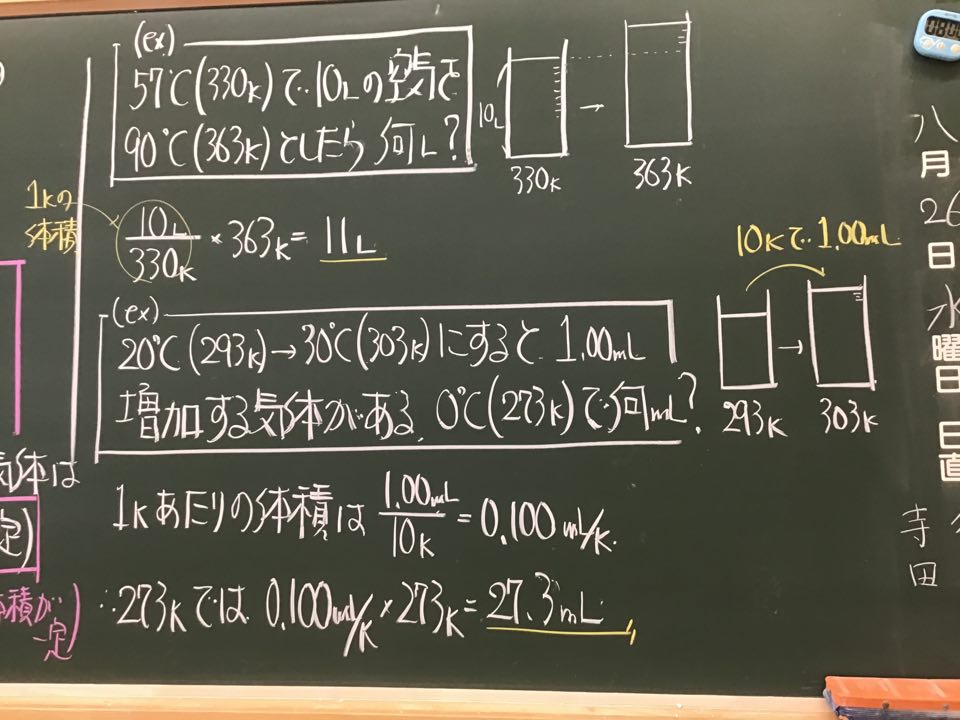 (ex)
57℃(330K)で10Lの空気は
90℃(363K)としたら何L?
10L
330K
→
363K
1Kの
体積
10L/330K × 363K = 11L
(ex)
20℃(293K)→30℃(303K)にすると 1.00mL
増加する気体がある. 0℃(273K)で何mL?
10Kで1.00mL
293K
→
303K
1Kあたりの体積は 1.00mL/10K = 0.100mL/K.
∴273Kでは 0.100mL/K × 273K = 27.3mL
気体は
定)
体積が
一定)
八
月
26
日
水
曜
日
日
直
寺
田